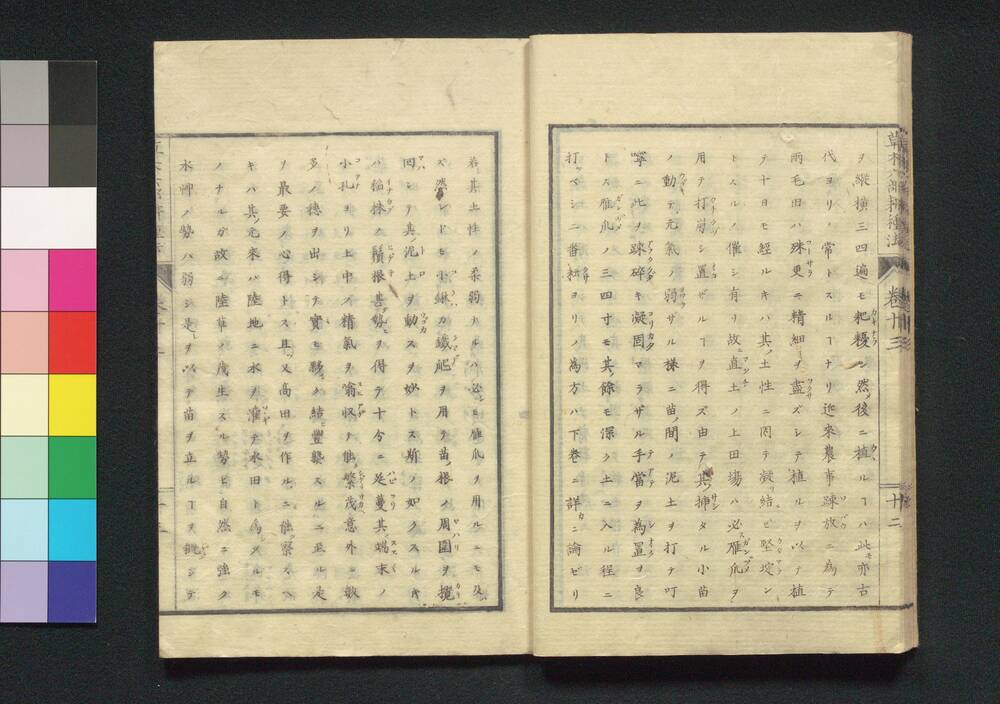 草木六部耕種法
卷十三
十二
ヲ縦横三四遍モ耙耰シ然後ニ植ルヿハ此モ亦古
代ヨリノ常トスルヿナリ近來農事疎放ニ為テ
雨毛田ハ殊更ニ精細ヲ盡ズシテ植ルヲ以テ植
テ十日モ經ルキハ其ノ土性ニ因テ凝結ビ堅埞ン
トスルノ催シ有リ故ニ直土ノ上田場ハ必雁爪ヲ
用テ打崩シ置ザルヿヲ得ズ由テ其挿タル小苗
ノ動テ元氣ノ弱サル様ニ苗ノ間ノ泥土ヲ打ナ叮
寧ニ此ヲ疎碎キ凝固マラザル手當ヲ為置ヲ良
トス雁爪ノ三四寸モ其餘モ深ク土ニ入ル程ニ
打ベシ二番耕ヨリノ為方ハ下卷ニ詳ニ論ゼリ
若其土性ノ柔弱ナルハ必ヒモ雁爪ヲ用ルニモ及
ズ然レドモ小鍬カ鐵肥ヲ用テ苗ノ根ノ周圍ヲ攪
回シテ真ノ泥土ヲ動スヲ妙トス斯ノ如クスルキ
ハ稲株ノ鬚根甚勢ヲ得テ十分ニ延蔓其端末ノ
小孔ヨリ土中ノ精氣ヲ噏収テ能繁茂意外ニ數
莖ノ穗ヲ出シテ實モ夥ク結豐熟スルニ至ル是
ヲ最要ノ心得トス且又高田ヲ作ルニ能察スヘ
キハ其元來ハ陸地ニ水ヲ准テ水田ト為タルモ
ノナルガ故ニ陸草ノ茂生スル勢ヒ自然ニ強ク
水艸ノ勢ハ弱シ是ヲ以テ苗ヲ立ルヿヲ